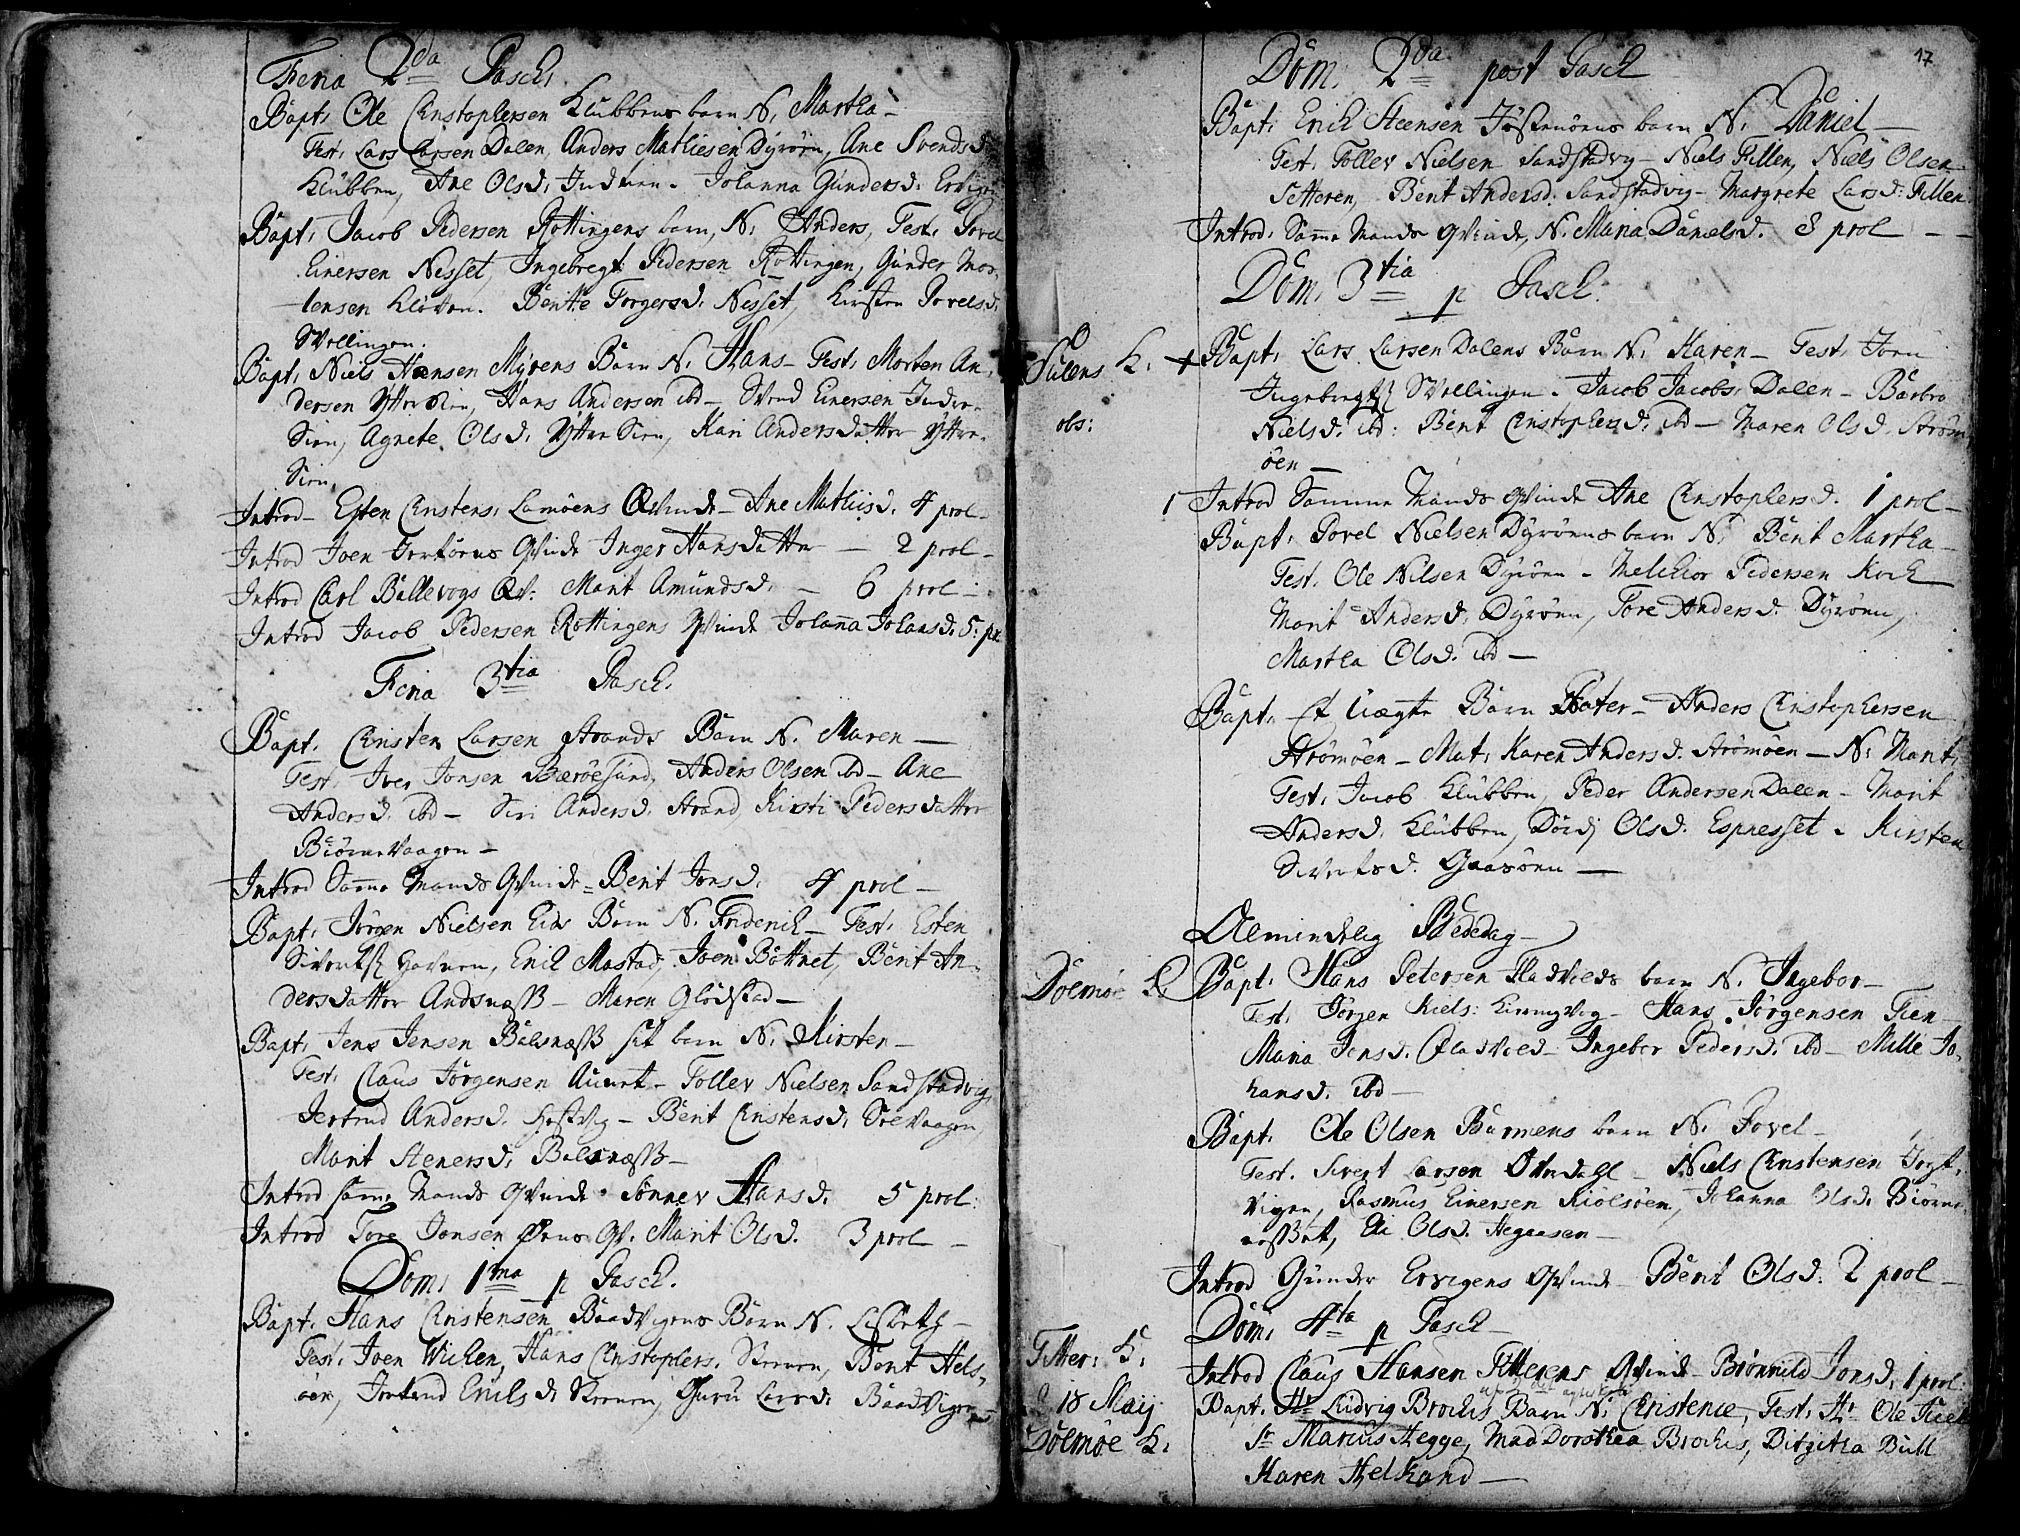 Feria 2da Pasch.
Bapt. Ole Christophersen Klubbens barn N. Martha –
Test. Lars Larsen Dalen, Anders Mathiesen Dyrøen, Ane Svendsd.
Klubben, Ane Olsd. Johanna Gundersd. Ervigen
Bapt. Jacob Pedersen Rottingens barn, N. Anders, Test. Povel
Einersen Nesset, Ingebregt Pedersen Rottingen, Gunder Mor-
tensen Kløven. Beritte Torgersd. Nesset, Kirsten Povelsd.
Svellingen.
Bapt. Niels Hansen Myrens Barn N. Hans – Test. Morten An-
dersen Yttre Sien, Hans Andersen ibd – Svend Einersen Indre-
Sien, Agnete Olsd. Yttre Sien, Kari Andersdatter Yttre-
Sien.
Introd – Esten Christens. Lamøens Qvinde – Ane Mathiisd. 4 prol –
Introd Joen Qvinde Inger Hansdatter – 2 prol –
Introd Carl Ballevogs Qv: Marit Amundsd. – 6 prol –
Introd Jacob Pedersen Rottingens Qvinde Johanna Johansd. 5. pr.
Feria 3tia Pasch.
Bapt. Christen Larsen Strands Barn N. Maren –
Test. Iver Jonsen Barøesund, Anders Olsen ibd – Ane
Andersd. ibd – Siri Andersd. Strand, Kirsti Pedersdatter
Biørnevaagen –
Introd Samme Mands Qvinde – Berit Jonsd. 4 prol –
Bapt. Jørgen Nielsen Eids Barn N. Friderich – Test. Esten
Sivertss Havnen, Erich Mastad, Joen Bottnet, Berit An-
dersdatter Andsnæss – Maren Glødstad –
Bapt. Jens Jensen Balsnæss sit barn N. Kirsten –
Test. Claus Jørgensen Aunet – Tollev Nielsen Sandstadvig,
Jertrud Andersd. Hestvig – Berit Christensd. Soevaagen,
Marit Stenersd. Balsnæss –
Introd samme Mands Qvinde Sønnev Hansd. 5 prol.
Introd Tore Jonsen Qv. Marit Olsd. 3 prol –
Dom. 1ma p Pasch.
Bapt. Hans Christensen Baadvigens Barn N. Lisbeth –
Test. Joen Wichen, Hans Christophers. Berit Hels-
øen, Jertrud Erichsd. Guru Larsd. Baadvigen
17
Dom. 2da post Pasch
Bapt. Erich Steensen Jøstenøens barn N. Daniel –
Test. Tollev Nielsen Sandstadvig – Niels Fillen, Niels Olsen
Setteren, Berit Andersd. Sandstadvig – Margrete Larsd. Fillen
Introd. Samme Mands Qvinde, N. Maria Danielsd. 8 prol –
Dom. 3tia p Pasch.
Sulens K. + Bapt. Lars Larsen Dalens Barn N. Karen – Test. Joen
Ingebregtss Svellingen – Jacob Jacobs. Dalen – Barbro
obs: Nielsd. ibd: Berit Christophersd. ibd – Maren Olsd. Strøm-
øen –
1 Introd Samme Mands Qvinde Ane Christophersd. 1 prol –
Bapt. Povel Nielsen Dyrøens barn N. Berit Martha –
Test. Ole Nilsen Dyrøen – Melchior Pedersen Koch
Marit Andersd. Dyrøen, Tore Andersd. Dyrøen,
Martha Olsd. ibd –
Bapt. Et Uægte Barn Fater – Anders Christophersen
Strømøen – Mat. Karen Andersd. Strømøen – N. Marit.
Test. Jacob Klubben, Peder Andersen Dalen – Marit
Andersd. Klubben, Dordj Olsd. Espnesset – Kirsten
Sivertsd. Gaasøen –
Almindelig Bededag –
Dolmøe K. Bapt. Hans Petersen Fladvolds barn N. Ingebor –
Test. Jørgen Niels: Hans Jørgensen Tien –
Maria Jensd. Fladvold – Ingebor Pedersd. ibd – Mille Jo-
hansd. ibd –
Bapt. Ole Olsen Barmens barn N. Povel –
Test. Sivert Larsen Niels Christensen
vigen, Rasmus Einersen Kiolsøen, Johanna Olsd. Biørn-
Eli Olsd. Hegaasen –
Introd Gunder Ervigens Qvinde – Berit Olsd. 2 prol –
Dom. 4ta p Pasch –
Titter: K. Introd Claus Hansen Titterens Qvinde – Brønnild Jonsd. 1 prol.
18 Maij Bapt. Hr Ludvig Brochs Barn N. Christence, Test. Hr Ole
Dolmøe K. Sr Marcus Hegge, Mad Dorothea Brochs, Birgitha Bull
Karen Helkand –